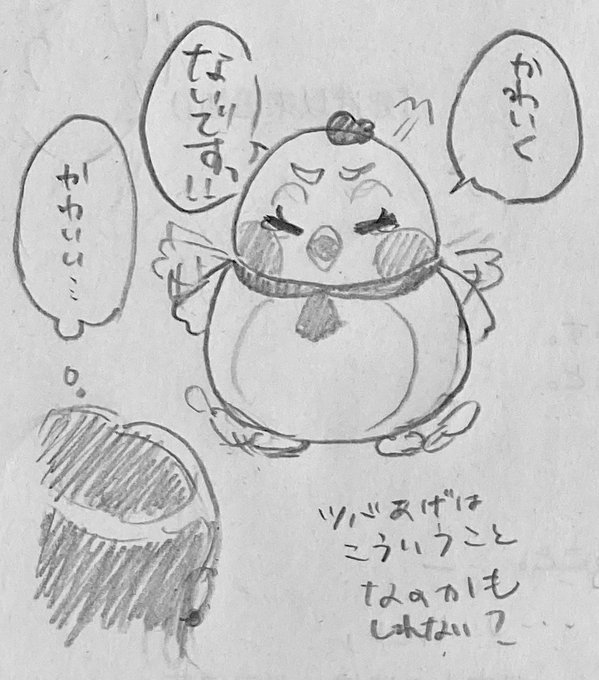 かわいく
ないですっ
かわいい…
ツバあげは
こういうこと
なのかも
しれない?